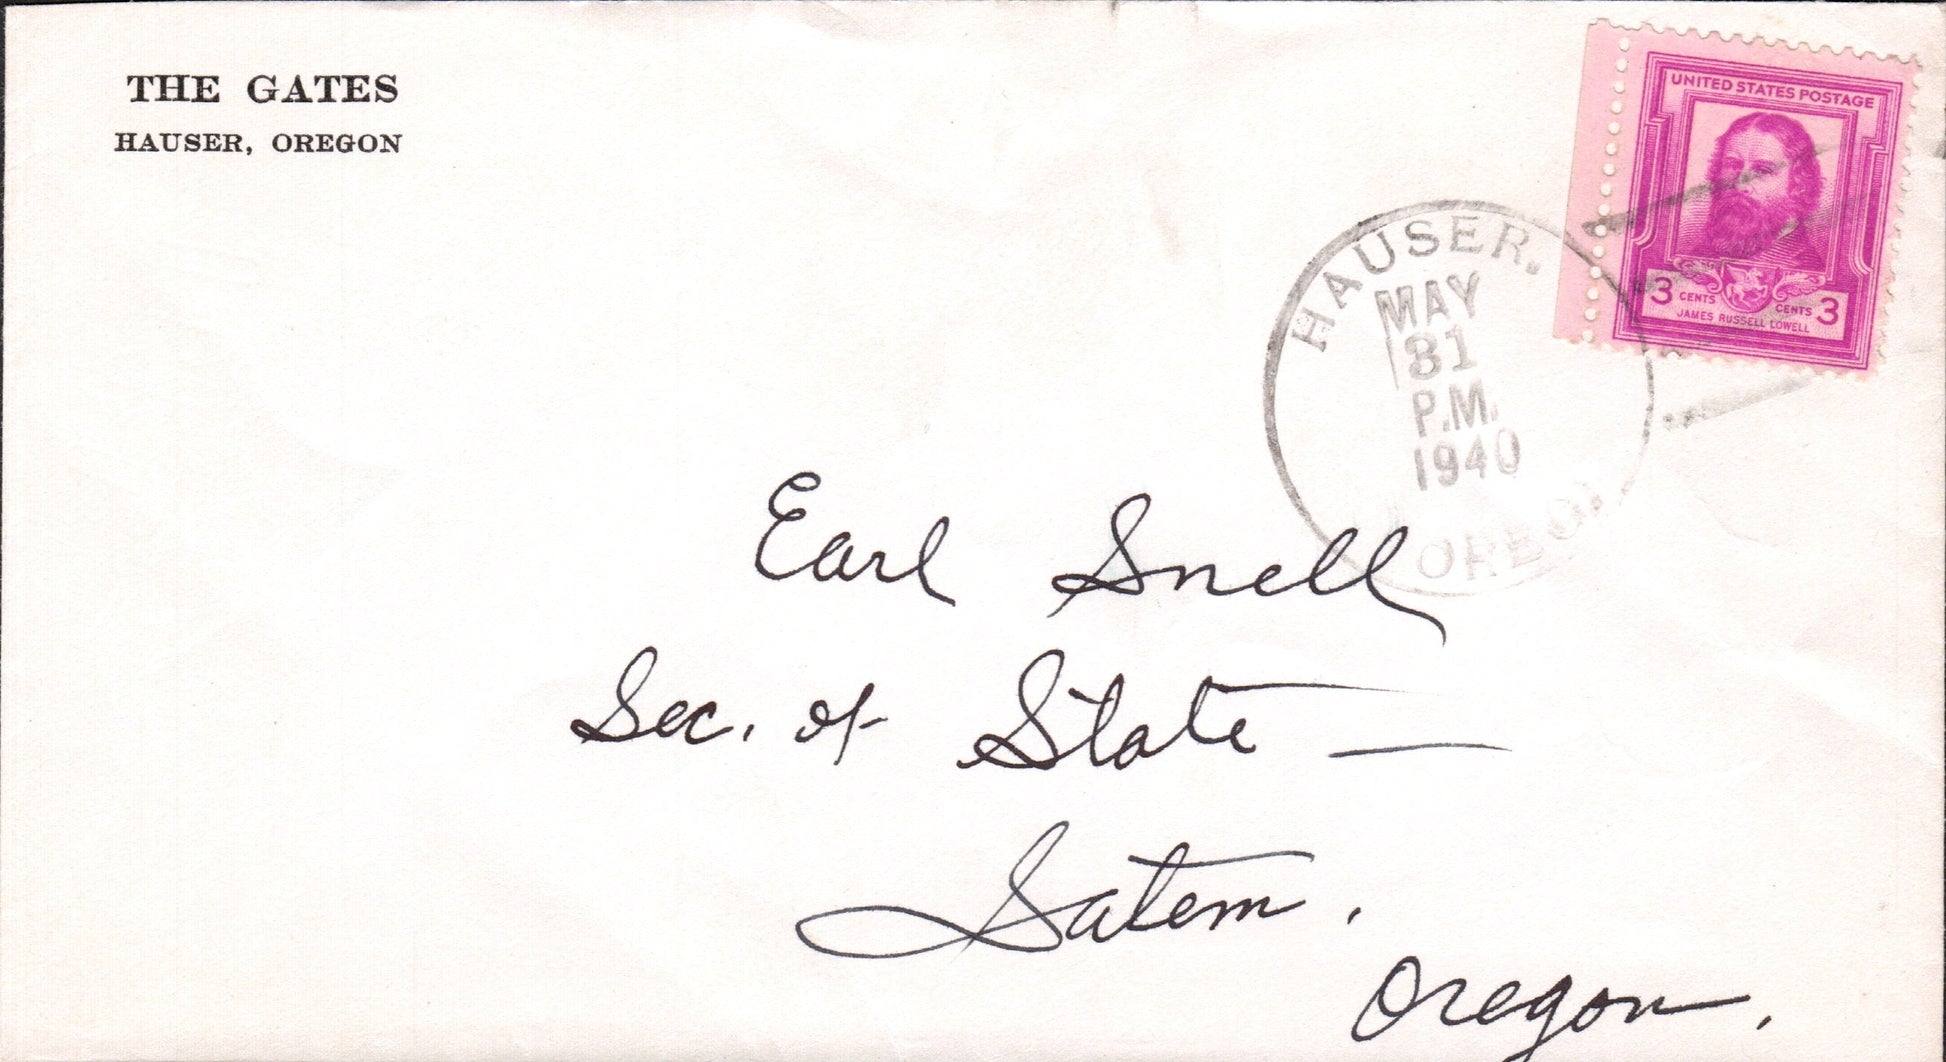 THE GATES
HAUSER, OREGON
UNITED STATES POSTAGE
3 CENTS CENTS 3
JAMES RUSSELL LOWELL
HAUSER,
MAY
31
P.M.
1940
OREGON
Earl Snell
Sec. of State —
Salem,
Oregon.